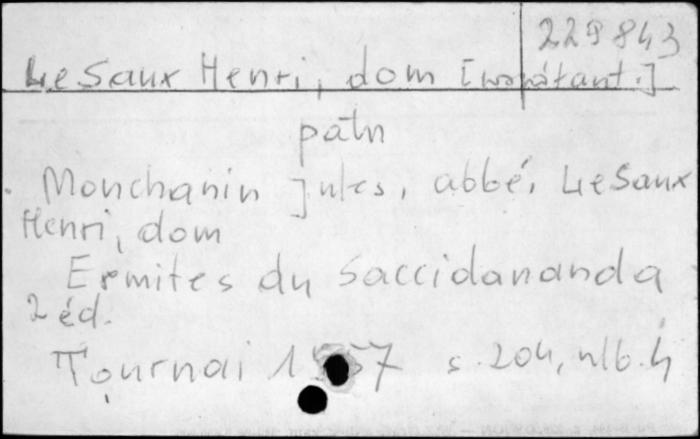 229843
Le Saux Henri, dom [współaut.]
patrz
Monchanin Jules, abbé, Le Saux
Henri, dom
Ermites du Saccidananda
2 éd.
Tournai 1957 s. 204, nlb. 4